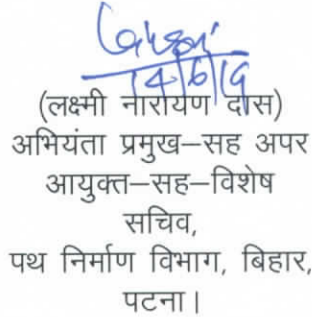 14/6/19
(लक्ष्मी नारायण दास)
अभियंता प्रमुख–सह अपर
आयुक्त–सह–विशेष
सचिव,
पथ निर्माण विभाग, बिहार,
पटना।